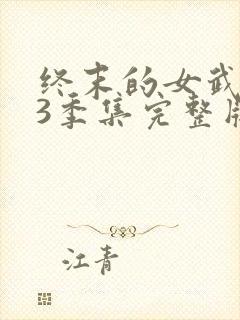 终末的女武
3季集完整
江青